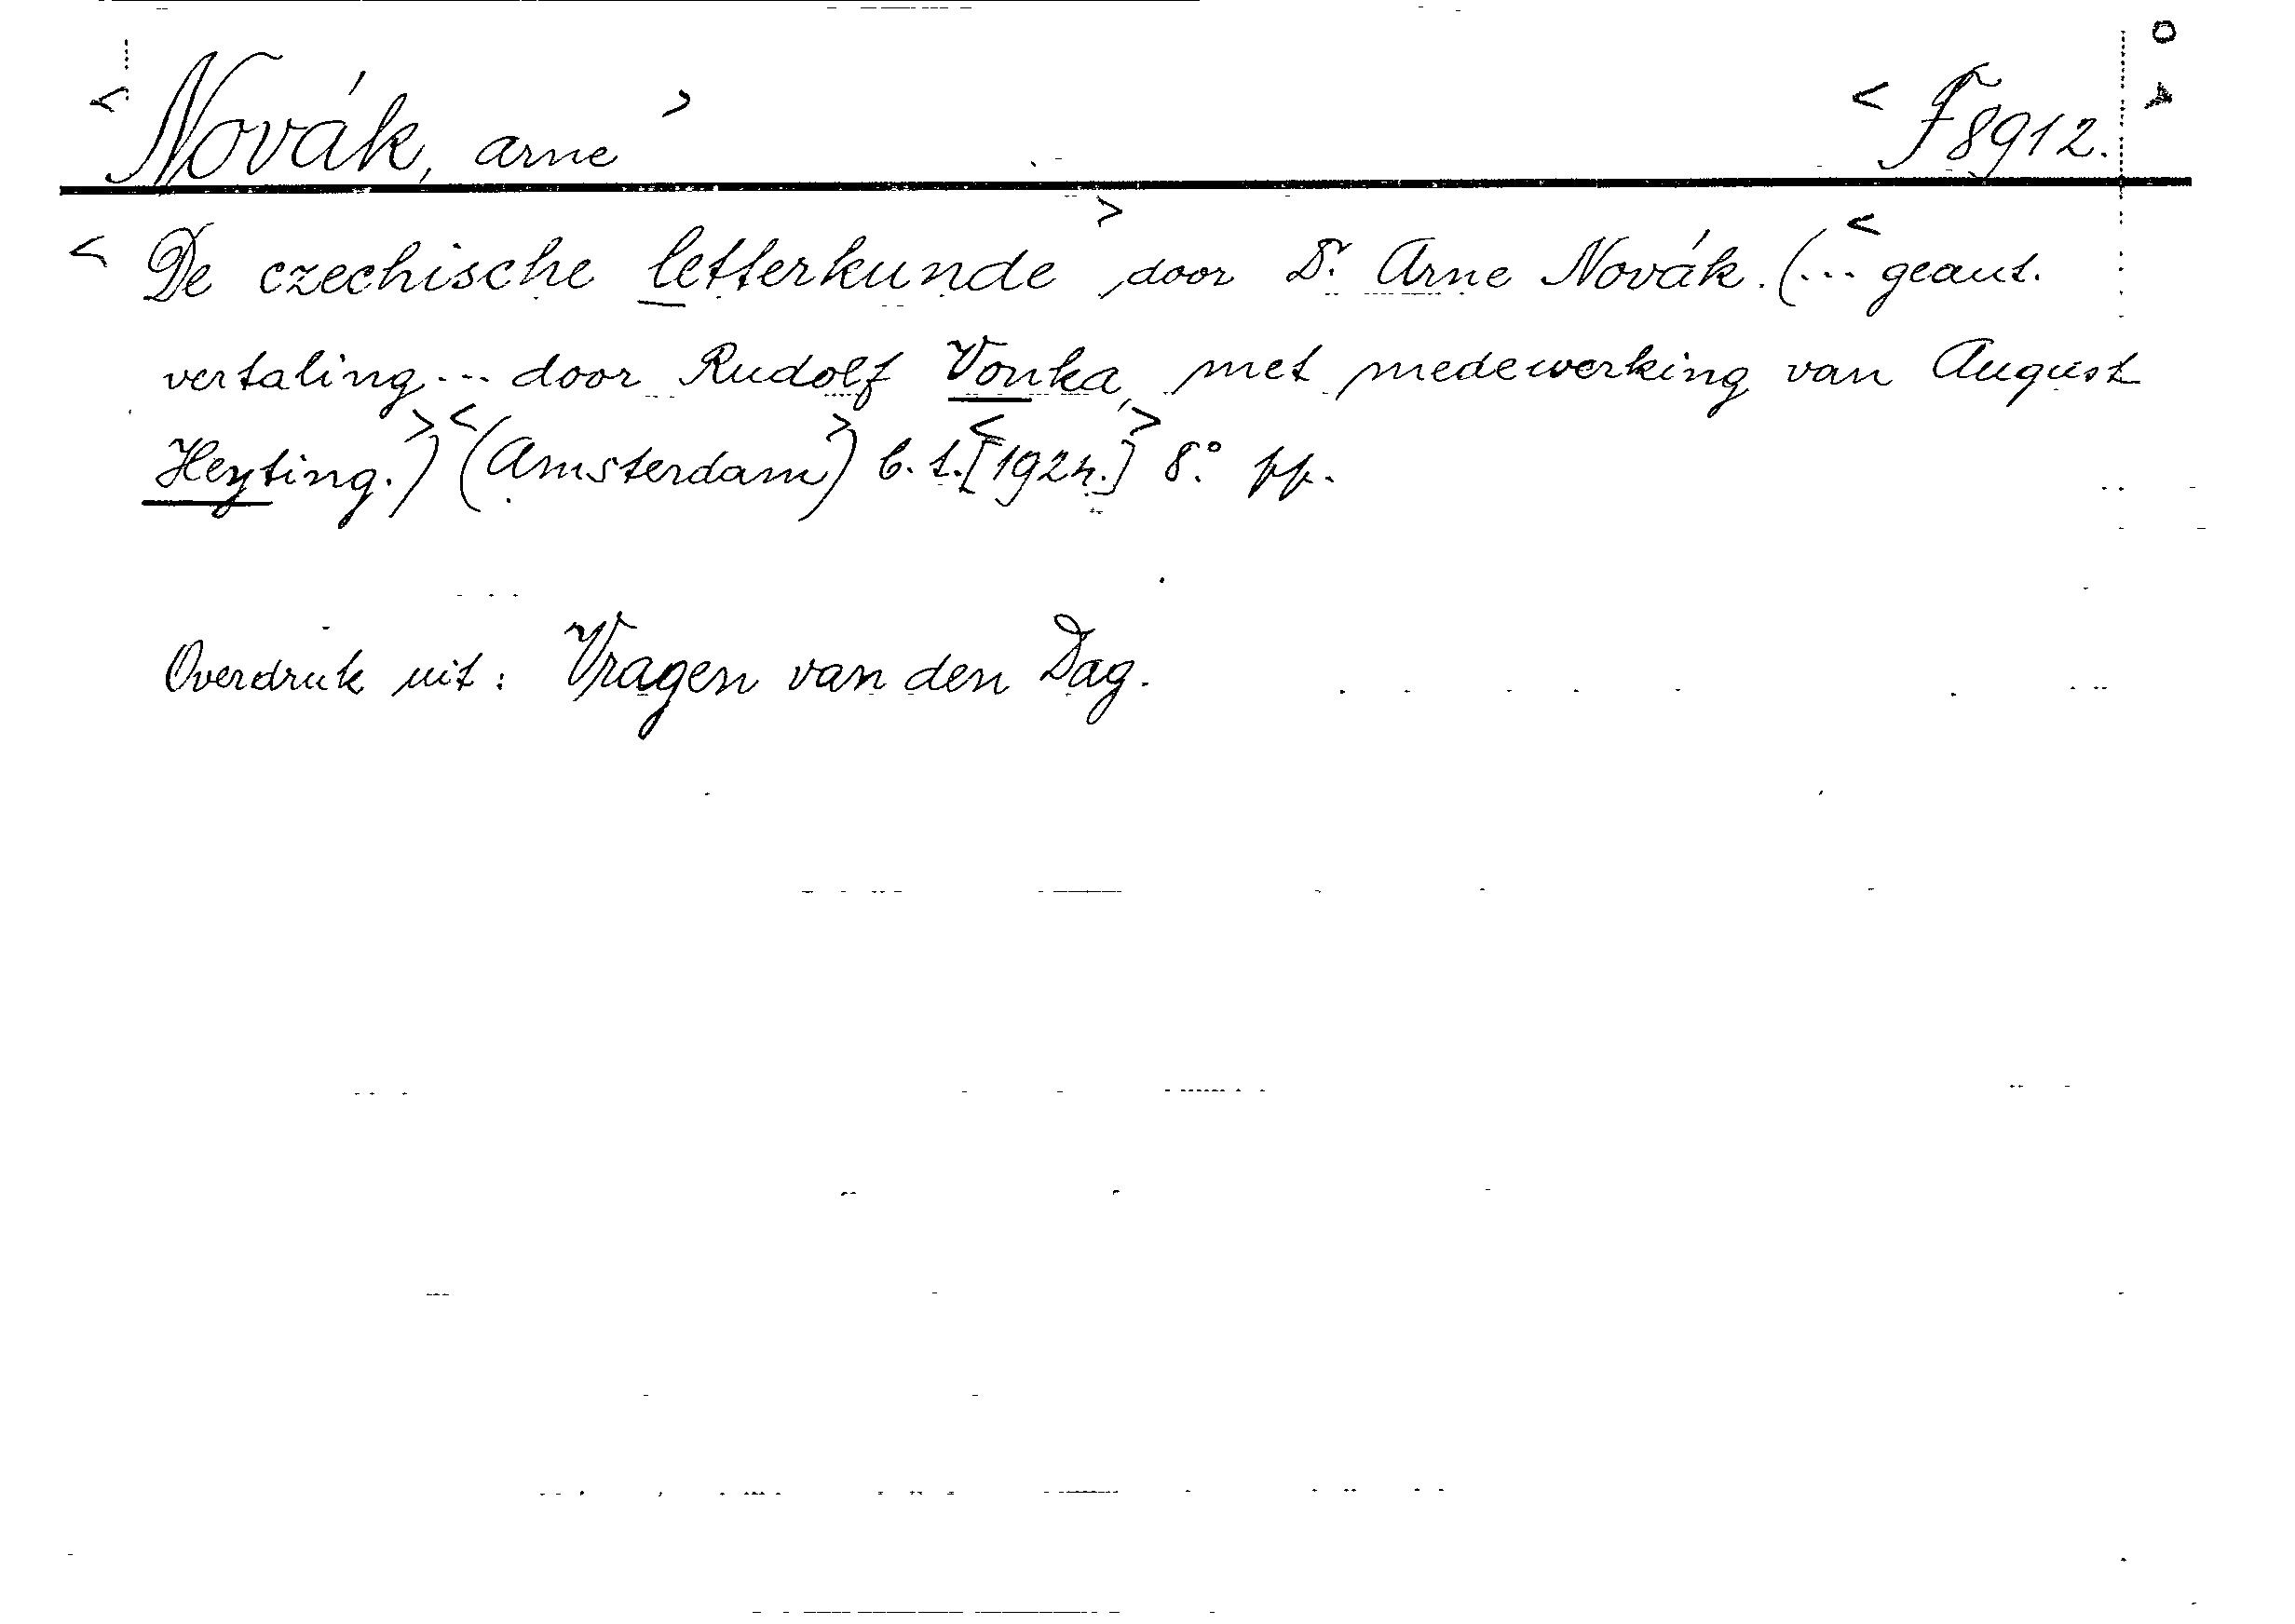 < Novák, Arne > < F 8912. >
< De czechische letterkunde >, door Dr. Arne Novák. (... < geaut.
vertaling ... door Rudolf Vonka, met medewerking van August
Heyting. >) < (Amsterdam >) b. t. < [1924.] > 8.° pp.
Overdruk uit: Vragen van den Dag.